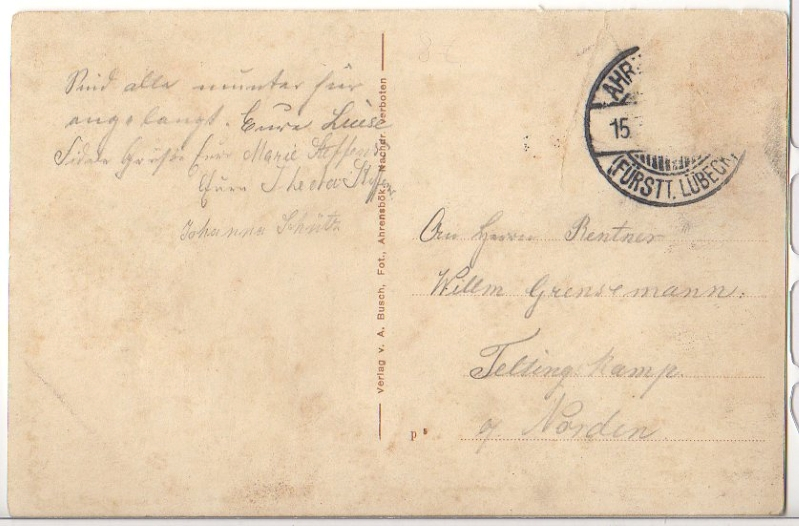 Sind alle munter hier
angelangt. Eure Luise
Grüße Eure Marie Steffens
Eure Theda
Johanna Schütz
Verlag v. A. Busch, Fot., Ahrensbök. Nachdr. verboten
AHR
15.
(FÜRSTT. LÜBECK)
An Herrn Rentner
Willm Grensemann.
Telting Kamp.
Norden
p